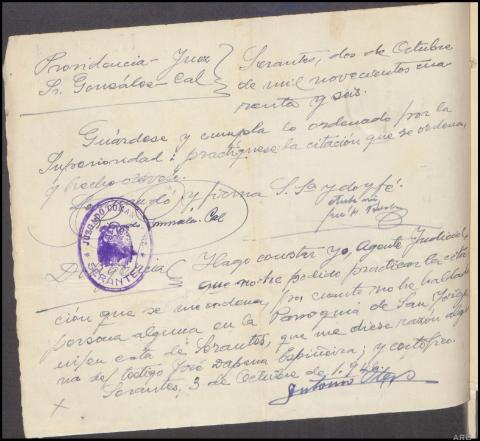 Providencia - Juez
Sr. González - Cal
Serantes, dos de Octubre
de mil novecientos cua
renta y seis.
Guárdese y cumpla lo ordenado por la
Superioridad: practíquese la citación que se ordena,
y hecho
y firma S. Sª y doy fé.
JUZGADO COMARCAL
SERANTES
González Cal
Diligencia Hago constar yo, Agente Judicial,
que no he podido practicar la cita
ción que se me ordena, por cuanto no he hallado
persona alguna en la Parroquia de San Jorge
ni en esta de Serantes, que me diese razón algu
na del testigo José Dapena Espiñeira; y certifico.
Serantes, 3 de Octubre de 1.946.
Antonio
ARG